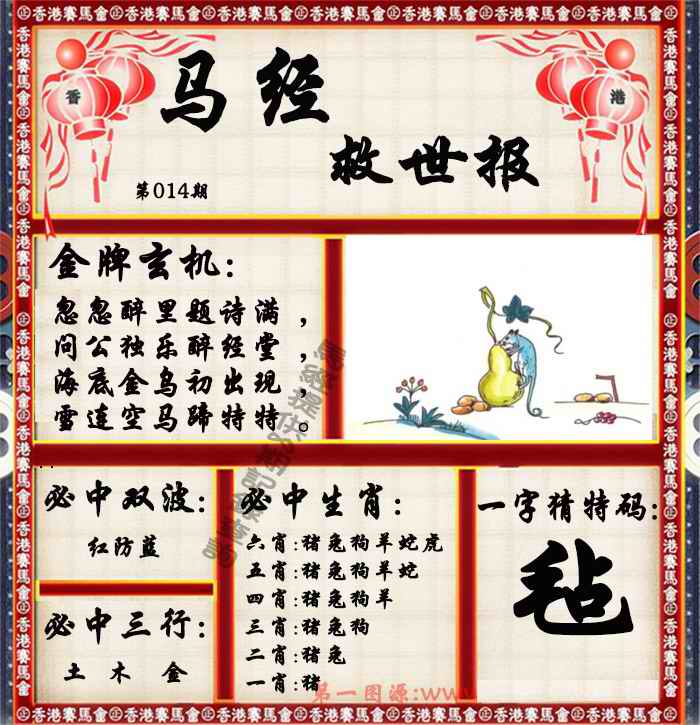 香港賽馬會
香 港
马经
救世报
第014期
金牌玄机:
忽忽醉里题诗满，
问公独乐醉经堂，
海底金乌初出现，
雪连空马蹄特特。
必中双波:
红防蓝
必中三行:
土 木 金
必中生肖:
六肖:猪兔狗羊蛇虎
五肖:猪兔狗羊蛇
四肖:猪兔狗羊
三肖:猪兔狗
二肖:猪兔
一肖:猪
一字猜特码:
毡
第一图源:www